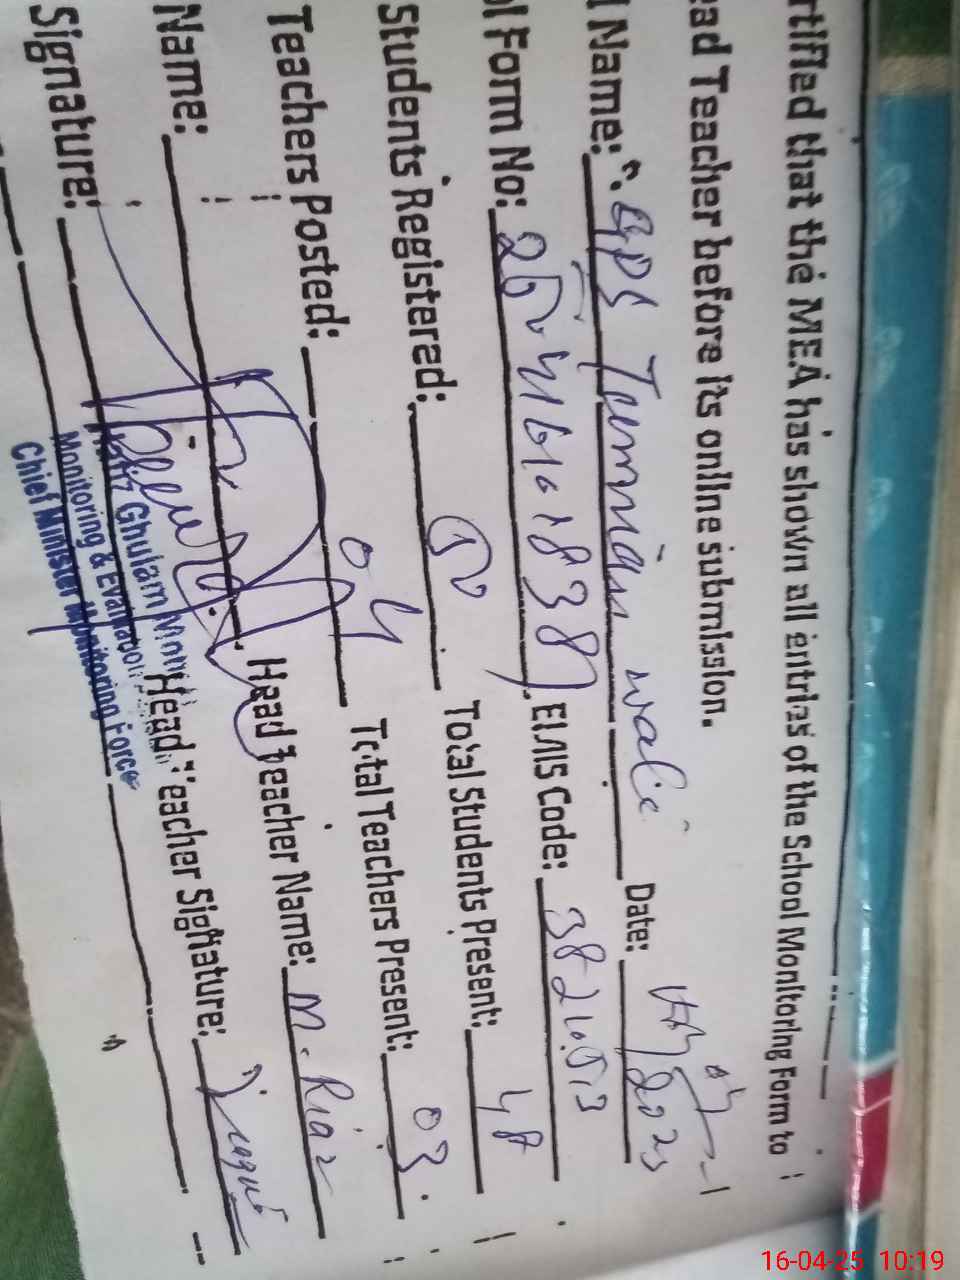 rtified that the MEA has shown all entries of the School Monitoring Form to
ead Teacher before its online submission.
l Name: GPS Tumman wali Date: 2025
ol Form No: EMIS Code:
Students Registered: Total Students Present: 48
Teachers Posted: 04 Total Teachers Present: 03
Name: Head Teacher Name: M. Riaz
Signature: Head Teacher Signature:
Hafiz Ghulam
Monitoring & Evaluation
Chief Minister Monitoring Force
16-04-25 10:19